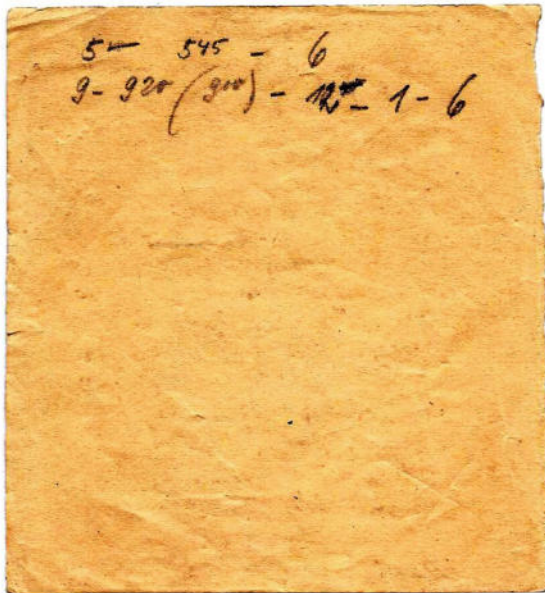 5 – 545 – 6
9 – 920 (900) – 12 – 1 – 6